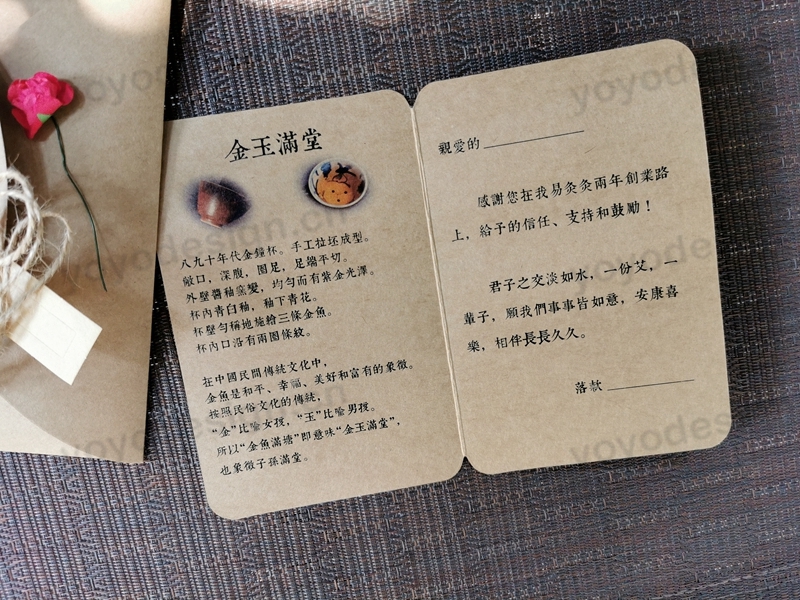 金玉滿堂
八九十年代金鐘杯。手工拉坯成型。
敞口，深腹，圈足，足端平切。
外壁醬釉窯變，均勻而有紫金光澤。
杯內青白釉，釉下青花。
杯壁勻稱地施繪三條金魚。
杯內口沿有兩圈條紋。
在中國民間傳統文化中，
金魚是和平、幸福、美好和富有的象徵。
按照民俗文化的傳統，
“金”比喻女孩，“玉”比喻男孩。
所以“金魚滿塘”即意味“金玉滿堂”，
也象徵子孫滿堂。
親愛的
感謝您在我易灸灸兩年創業路
上，給予的信任、支持和鼓勵！
君子之交淡如水，一份艾，一
輩子，願我們事事皆如意，安康喜
樂，相伴長長久久。
落款
yoyodesign.cn